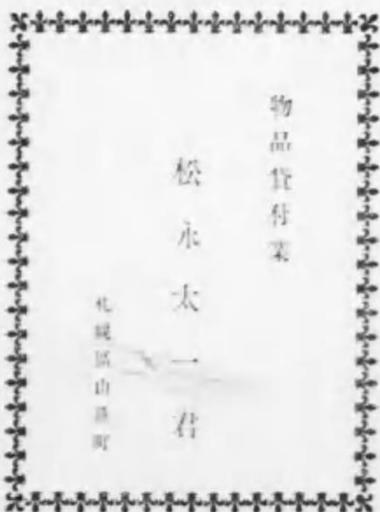 物品貸付業
松永太一君
札幌區山鼻町